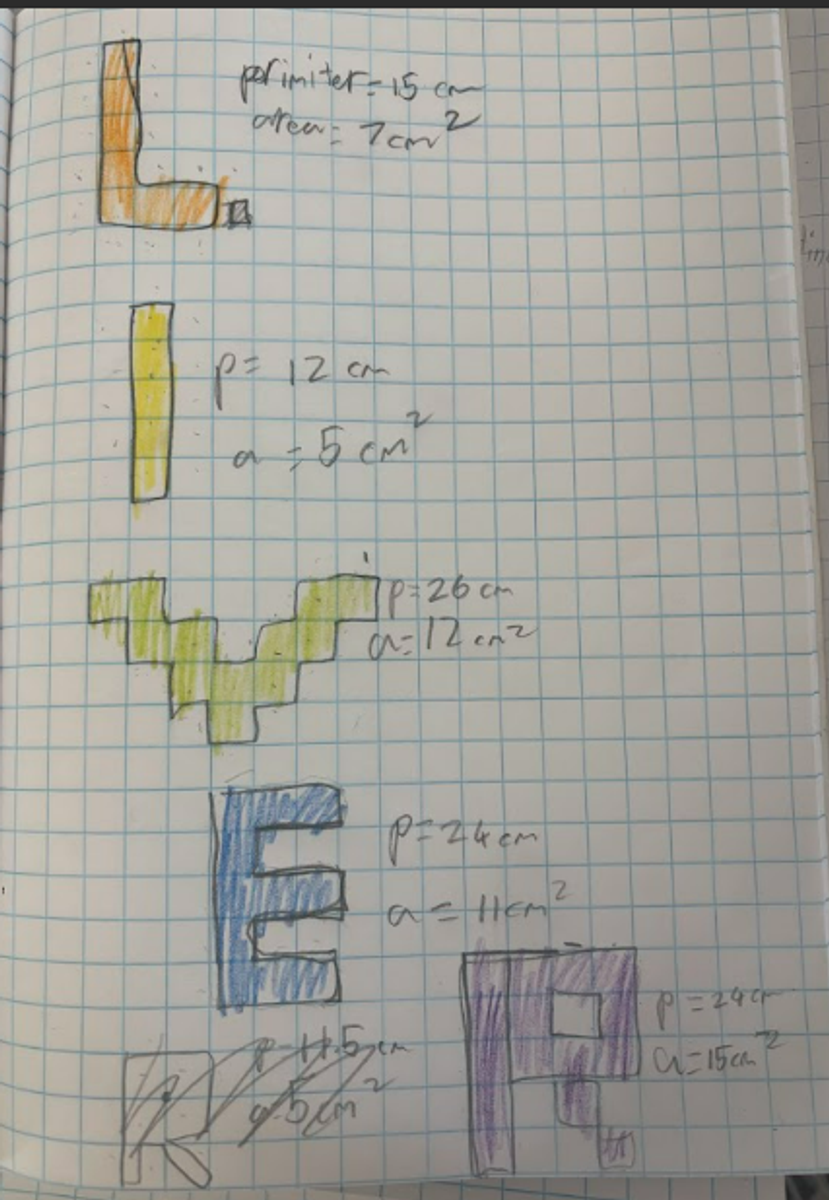 perimiter = 15 cm
area = 7cm²
p = 12 cm
a = 5 cm²
p=26 cm
a=12 cm²
p=24cm
a = 11cm²
p = 24cm
a=15cm²
p 11.5 cm
a 5cm²